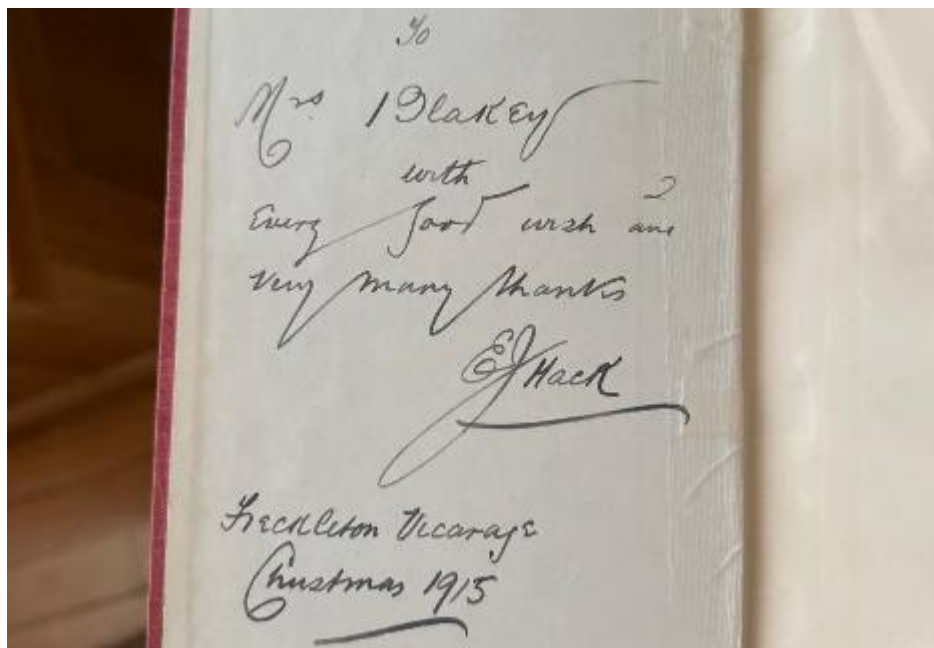 To
Mrs. Blakey
with
Every good wish and
very many thanks
EJ Hack
Freckleton Vicarage
Christmas 1915